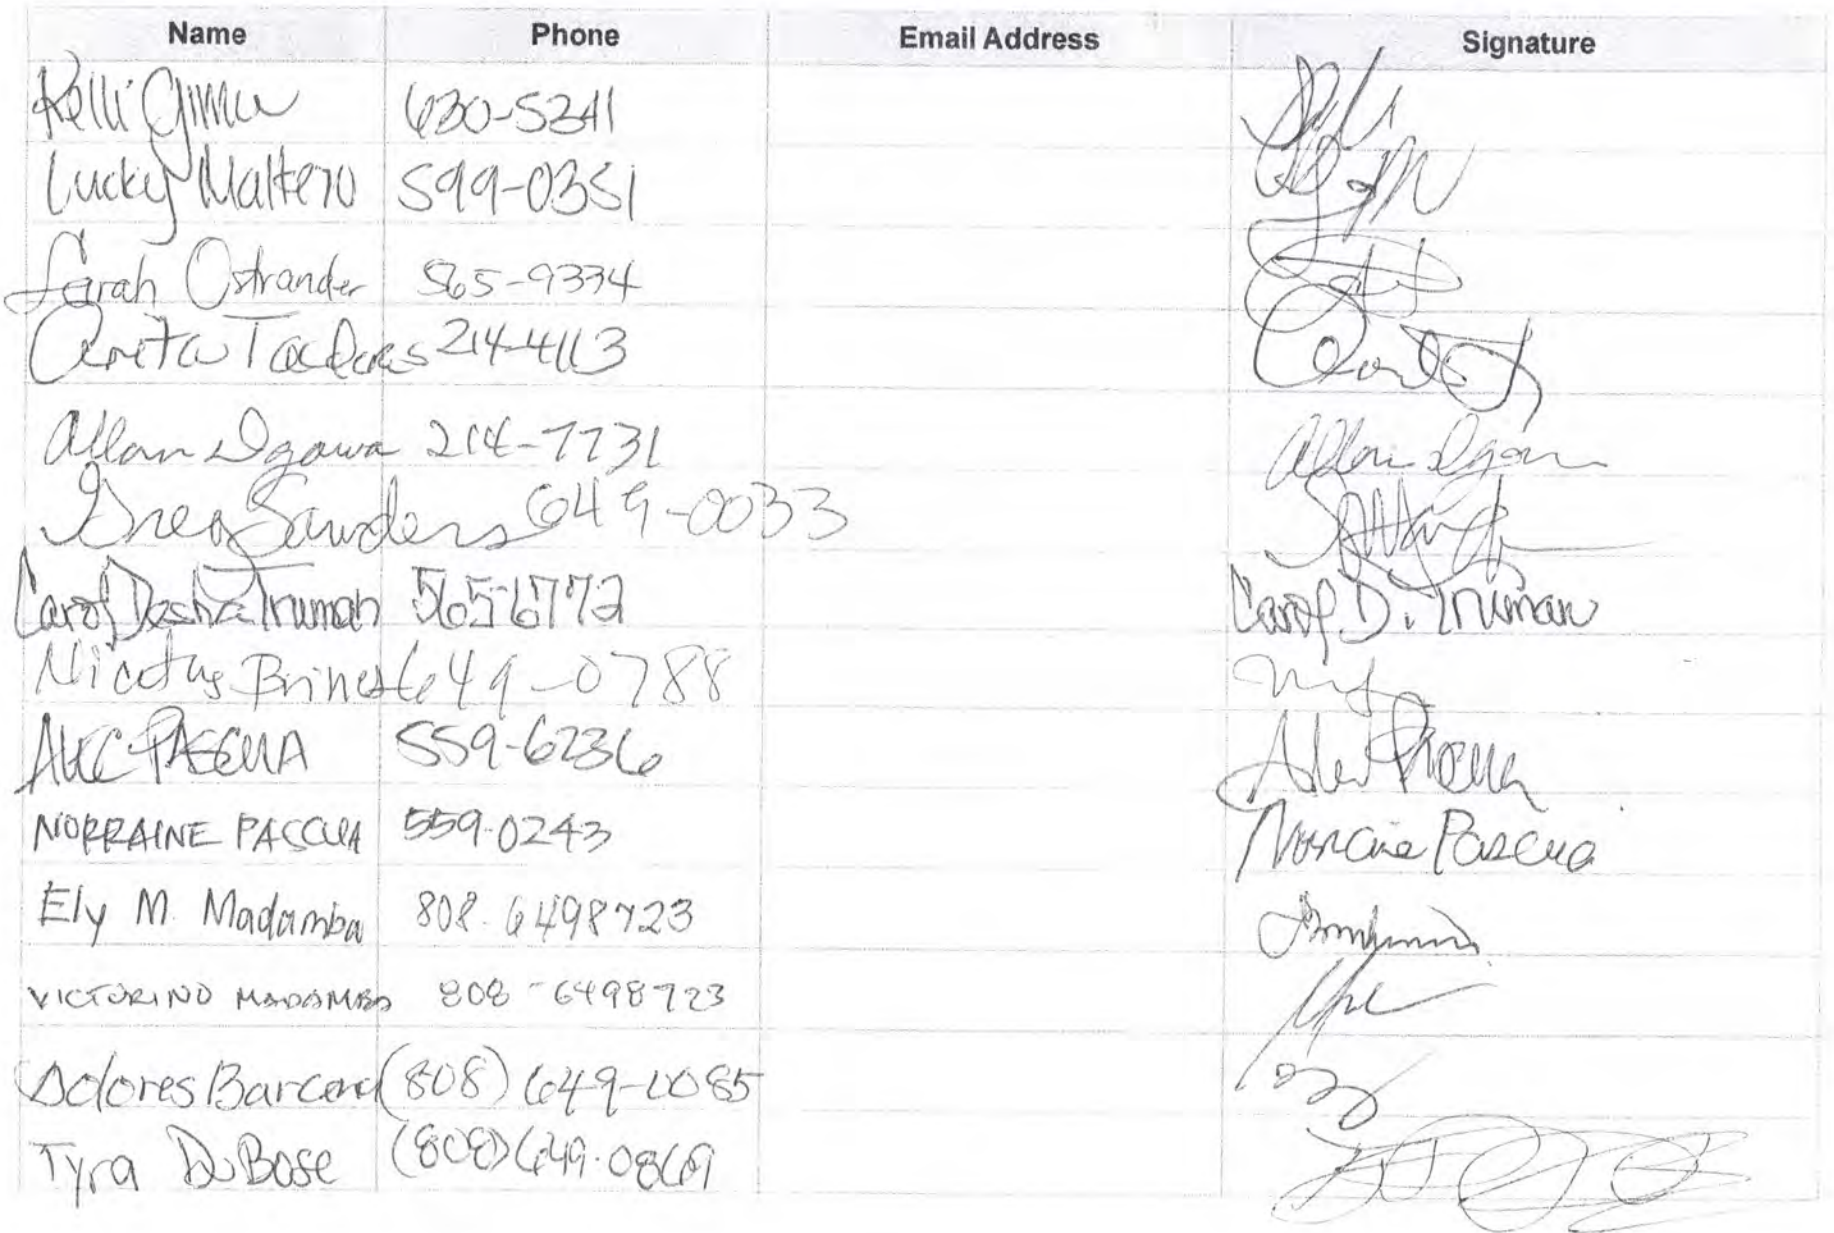 Name Phone Email Address Signature
Kelli Gima 630-5241
Lucky Maltero 599-0351
Sarah Ostrander 565-9334
214-4113
Allan Igawa 214-7731 Allan Igawa
Greg Sanders 649-0033
Carol Desha Truman 565-6772 Carol D. Truman
649-0788
Alec PASCUA 559-6236 Alec Pascua
NORRAINE PASCUA 559-0243 Norraine Pascua
Ely M. Madamba 808-6498723
VICTORINO MADAMBA 808-6498723
Dolores Barcena (808) 649-0085
Tyra DuBose (808) 649-0869